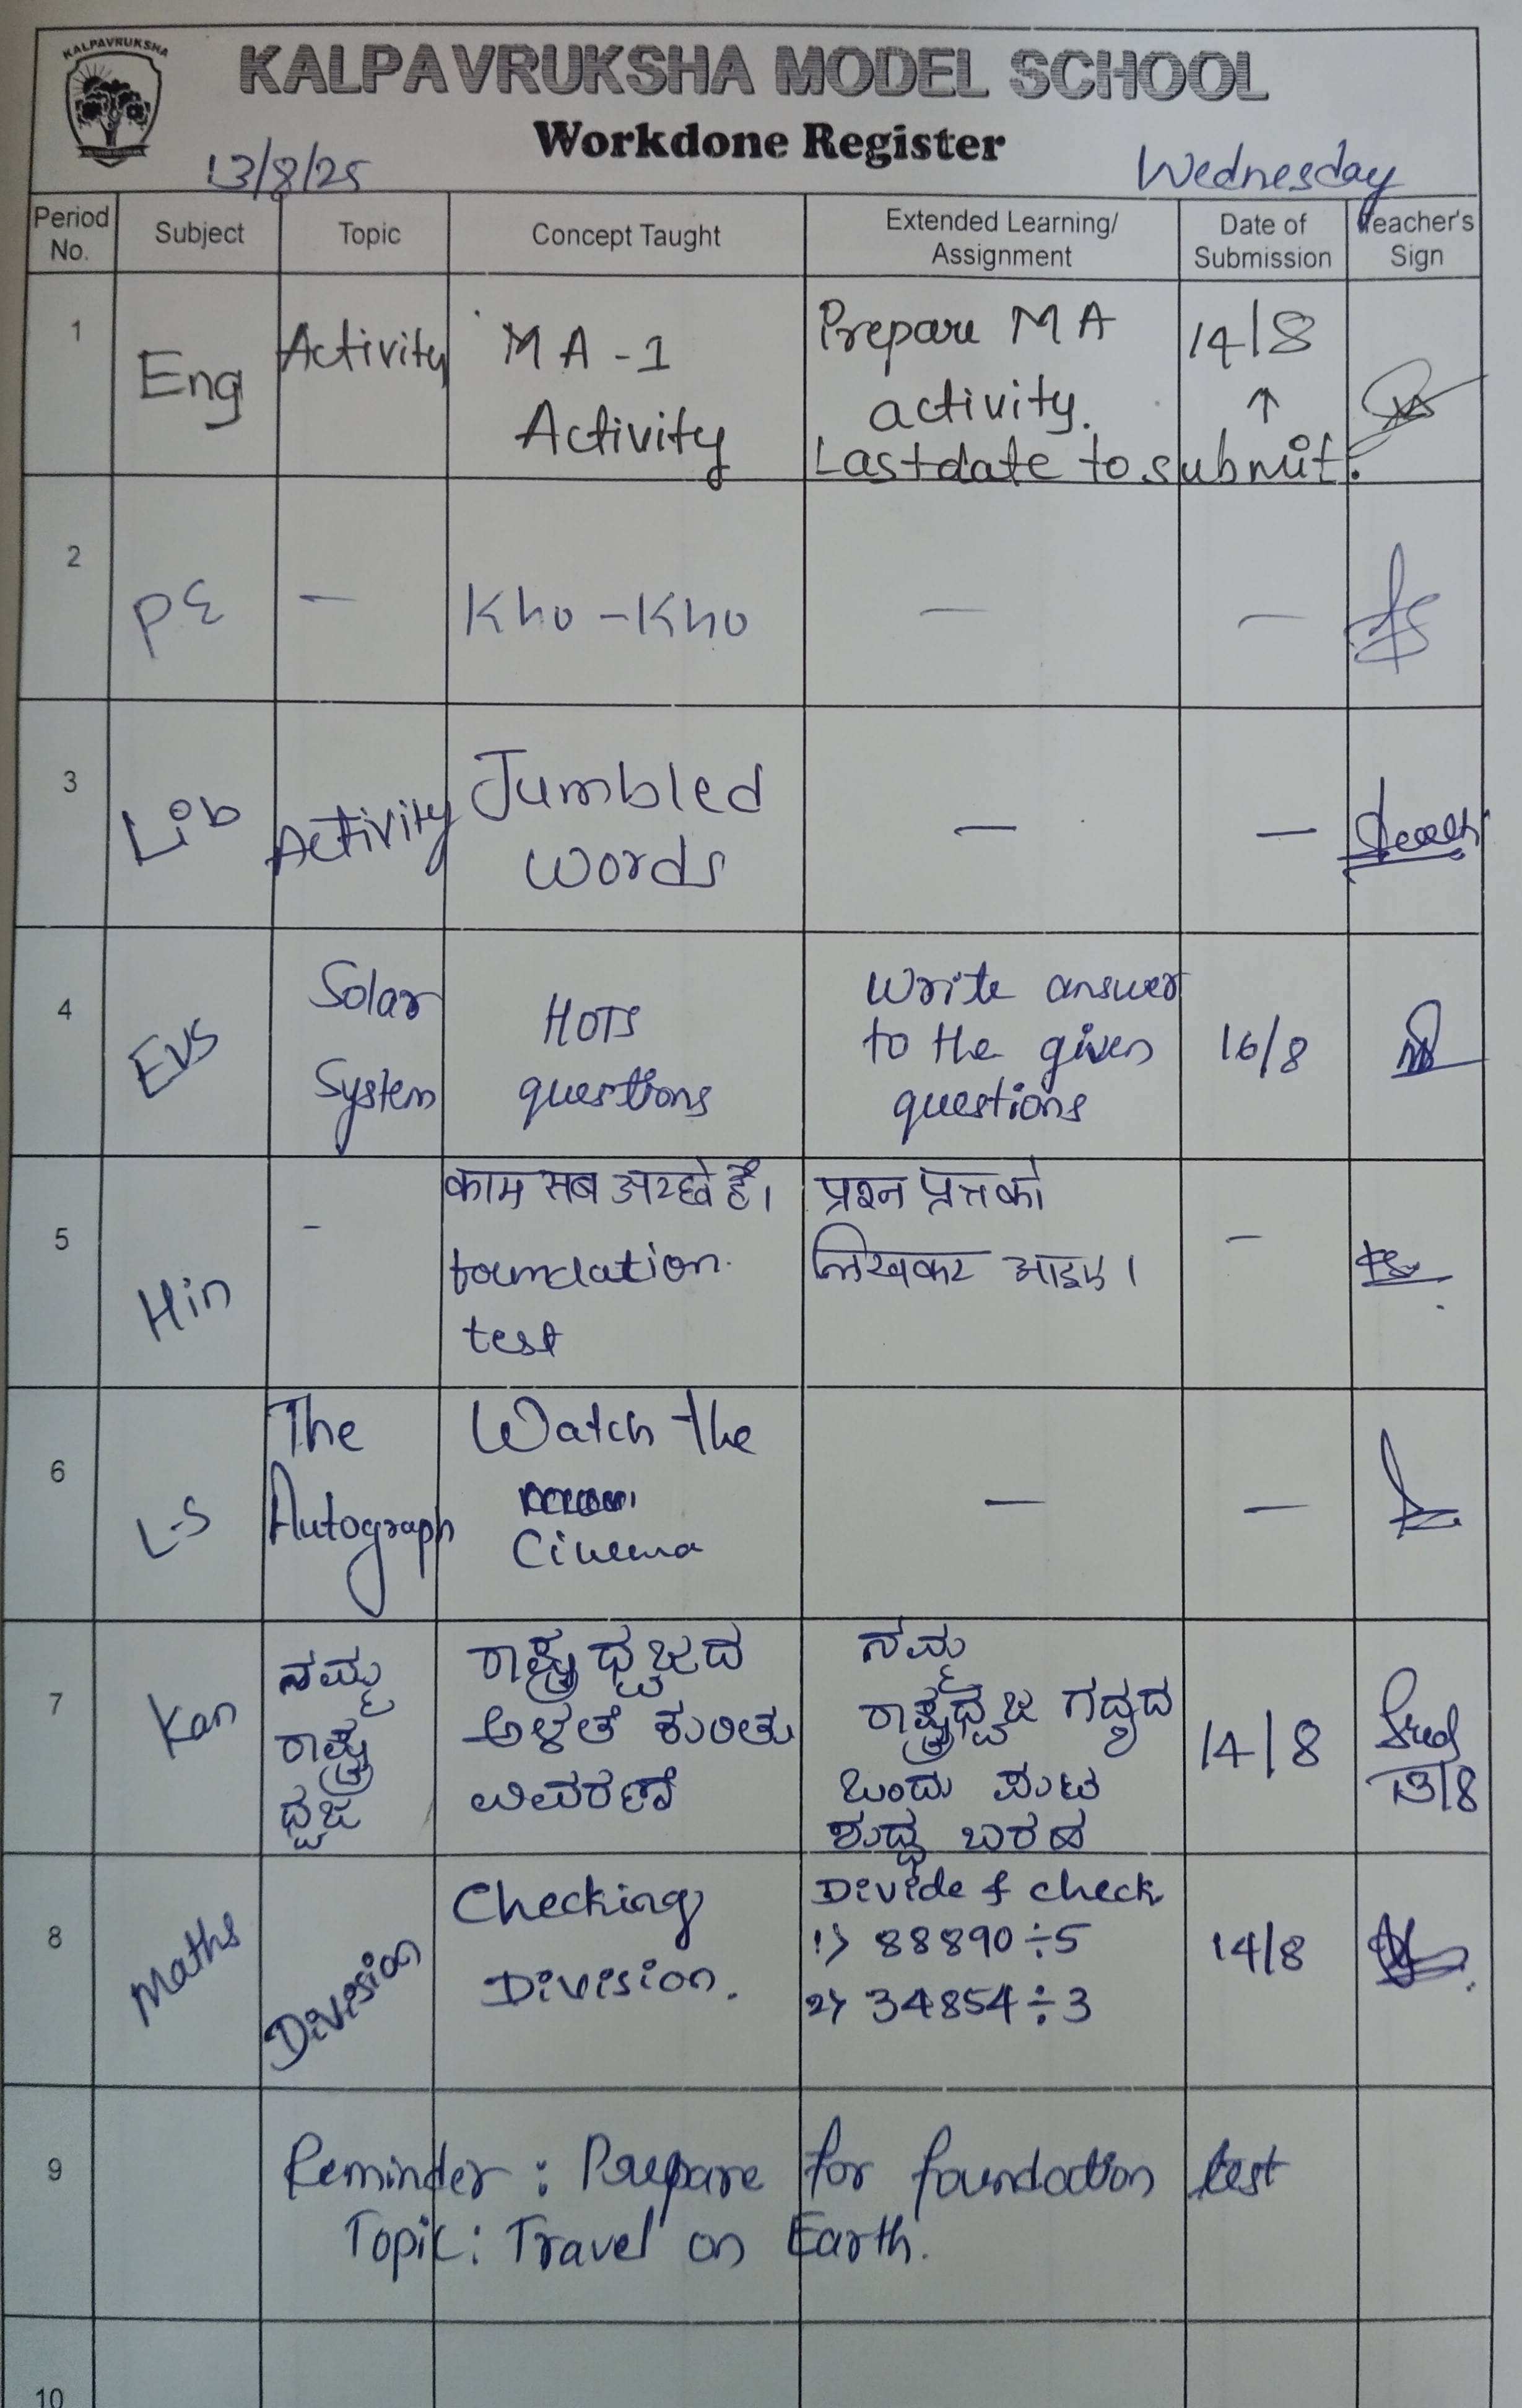 KALPAVRUKSHA
KALPAVRUKSHA MODEL SCHOOL
Workdone Register
13/8/25
Wednesday
Period No.
Subject
Topic
Concept Taught
Extended Learning/ Assignment
Date of Submission
Teacher's Sign
1
Eng
Activity
MA-1
Activity
Prepare MA
activity.
Last date to submit.
14/8
↑
2
PE
—
Kho-Kho
—
—
3
Lib
Activity
Jumbled
words
—
—
4
EVS
Solar
System
HOTS
questions
Write answer
to the given
questions
16/8
5
Hin
-
काम सब अच्छे हैं।
foundation
test
प्रश्न प्रत्त को
लिखकर आइए।
-
6
L-S
The
Autograph
Watch the
Cinema
—
—
7
Kan
ನಮ್ಮ
ರಾಷ್ಟ್ರ
ಧ್ವಜ
ರಾಷ್ಟ್ರಧ್ವಜದ
ಅಳತೆ ಕುರಿತು
ವಿವರಣೆ
ನಮ್ಮ
ರಾಷ್ಟ್ರಧ್ವಜ ಗದ್ಯದ
ಒಂದು ಪುಟ
ಶುದ್ಧ ಬರಹ
14/8
13/8
8
Maths
Division
Checking
Division.
Divide & check
1) 88890÷5
2) 34854÷3
14/8
9
Reminder : Prepare for foundation test
Topic : Travel on Earth.
10